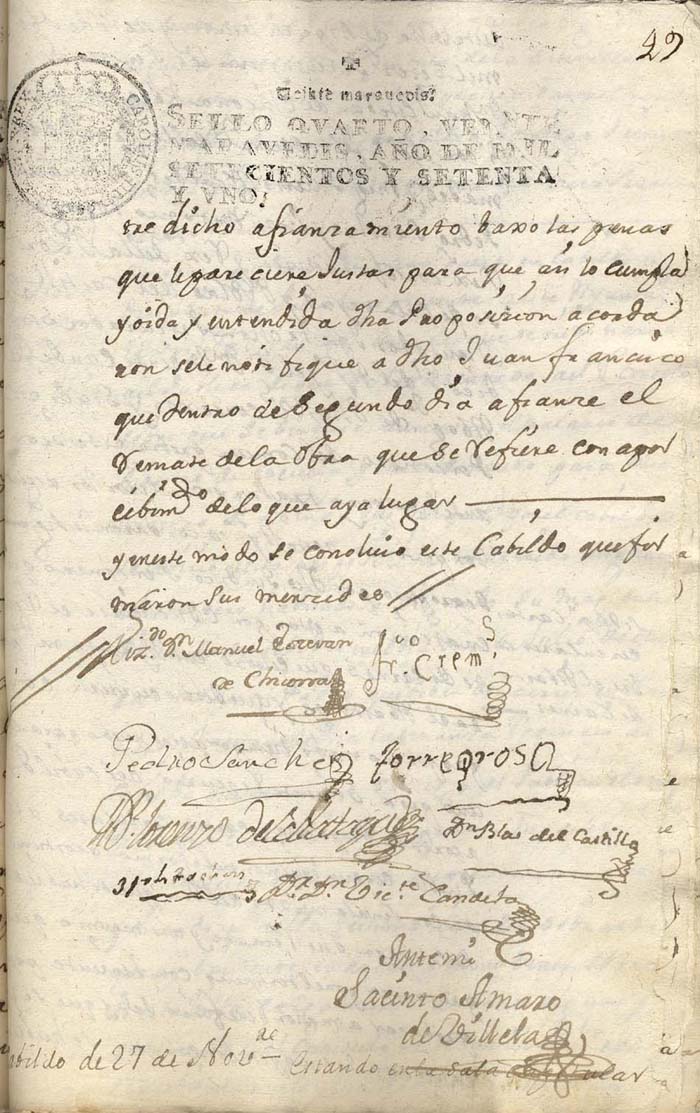 49
Veinte maravedis.
SELLO QVARTO, VEINTE
MARAVEDIS, AÑO DE MIL
SETECIENTOS Y SETENTA
Y VNO.
CAROLUS
REX
tre dicho afianzamiento baxo las penas
que le pareciere Justas para que asi lo cumpla
y oida y entendida dha Proposicion acorda
ron se le notifique a dho Juan francisco
que dentro de Segundo dia afianze el
Remate de la Obra que se refiere con aper
cibimto de lo que aya lugar
y en este modo se concluio este Cabildo que fir
maron sus mercedes
Lizdo Dn Manuel Estevan
de Chicorra
Juo
fr. Crem s
Pedro Sanches Torregrosa
Lorenzo
Dn Blas del Castillo
Dr Dn Victe Candela
Antemi
Jacinto Amaro
de Villela
Cabildo de 27 de Nove
Estando en la Sala Capitular